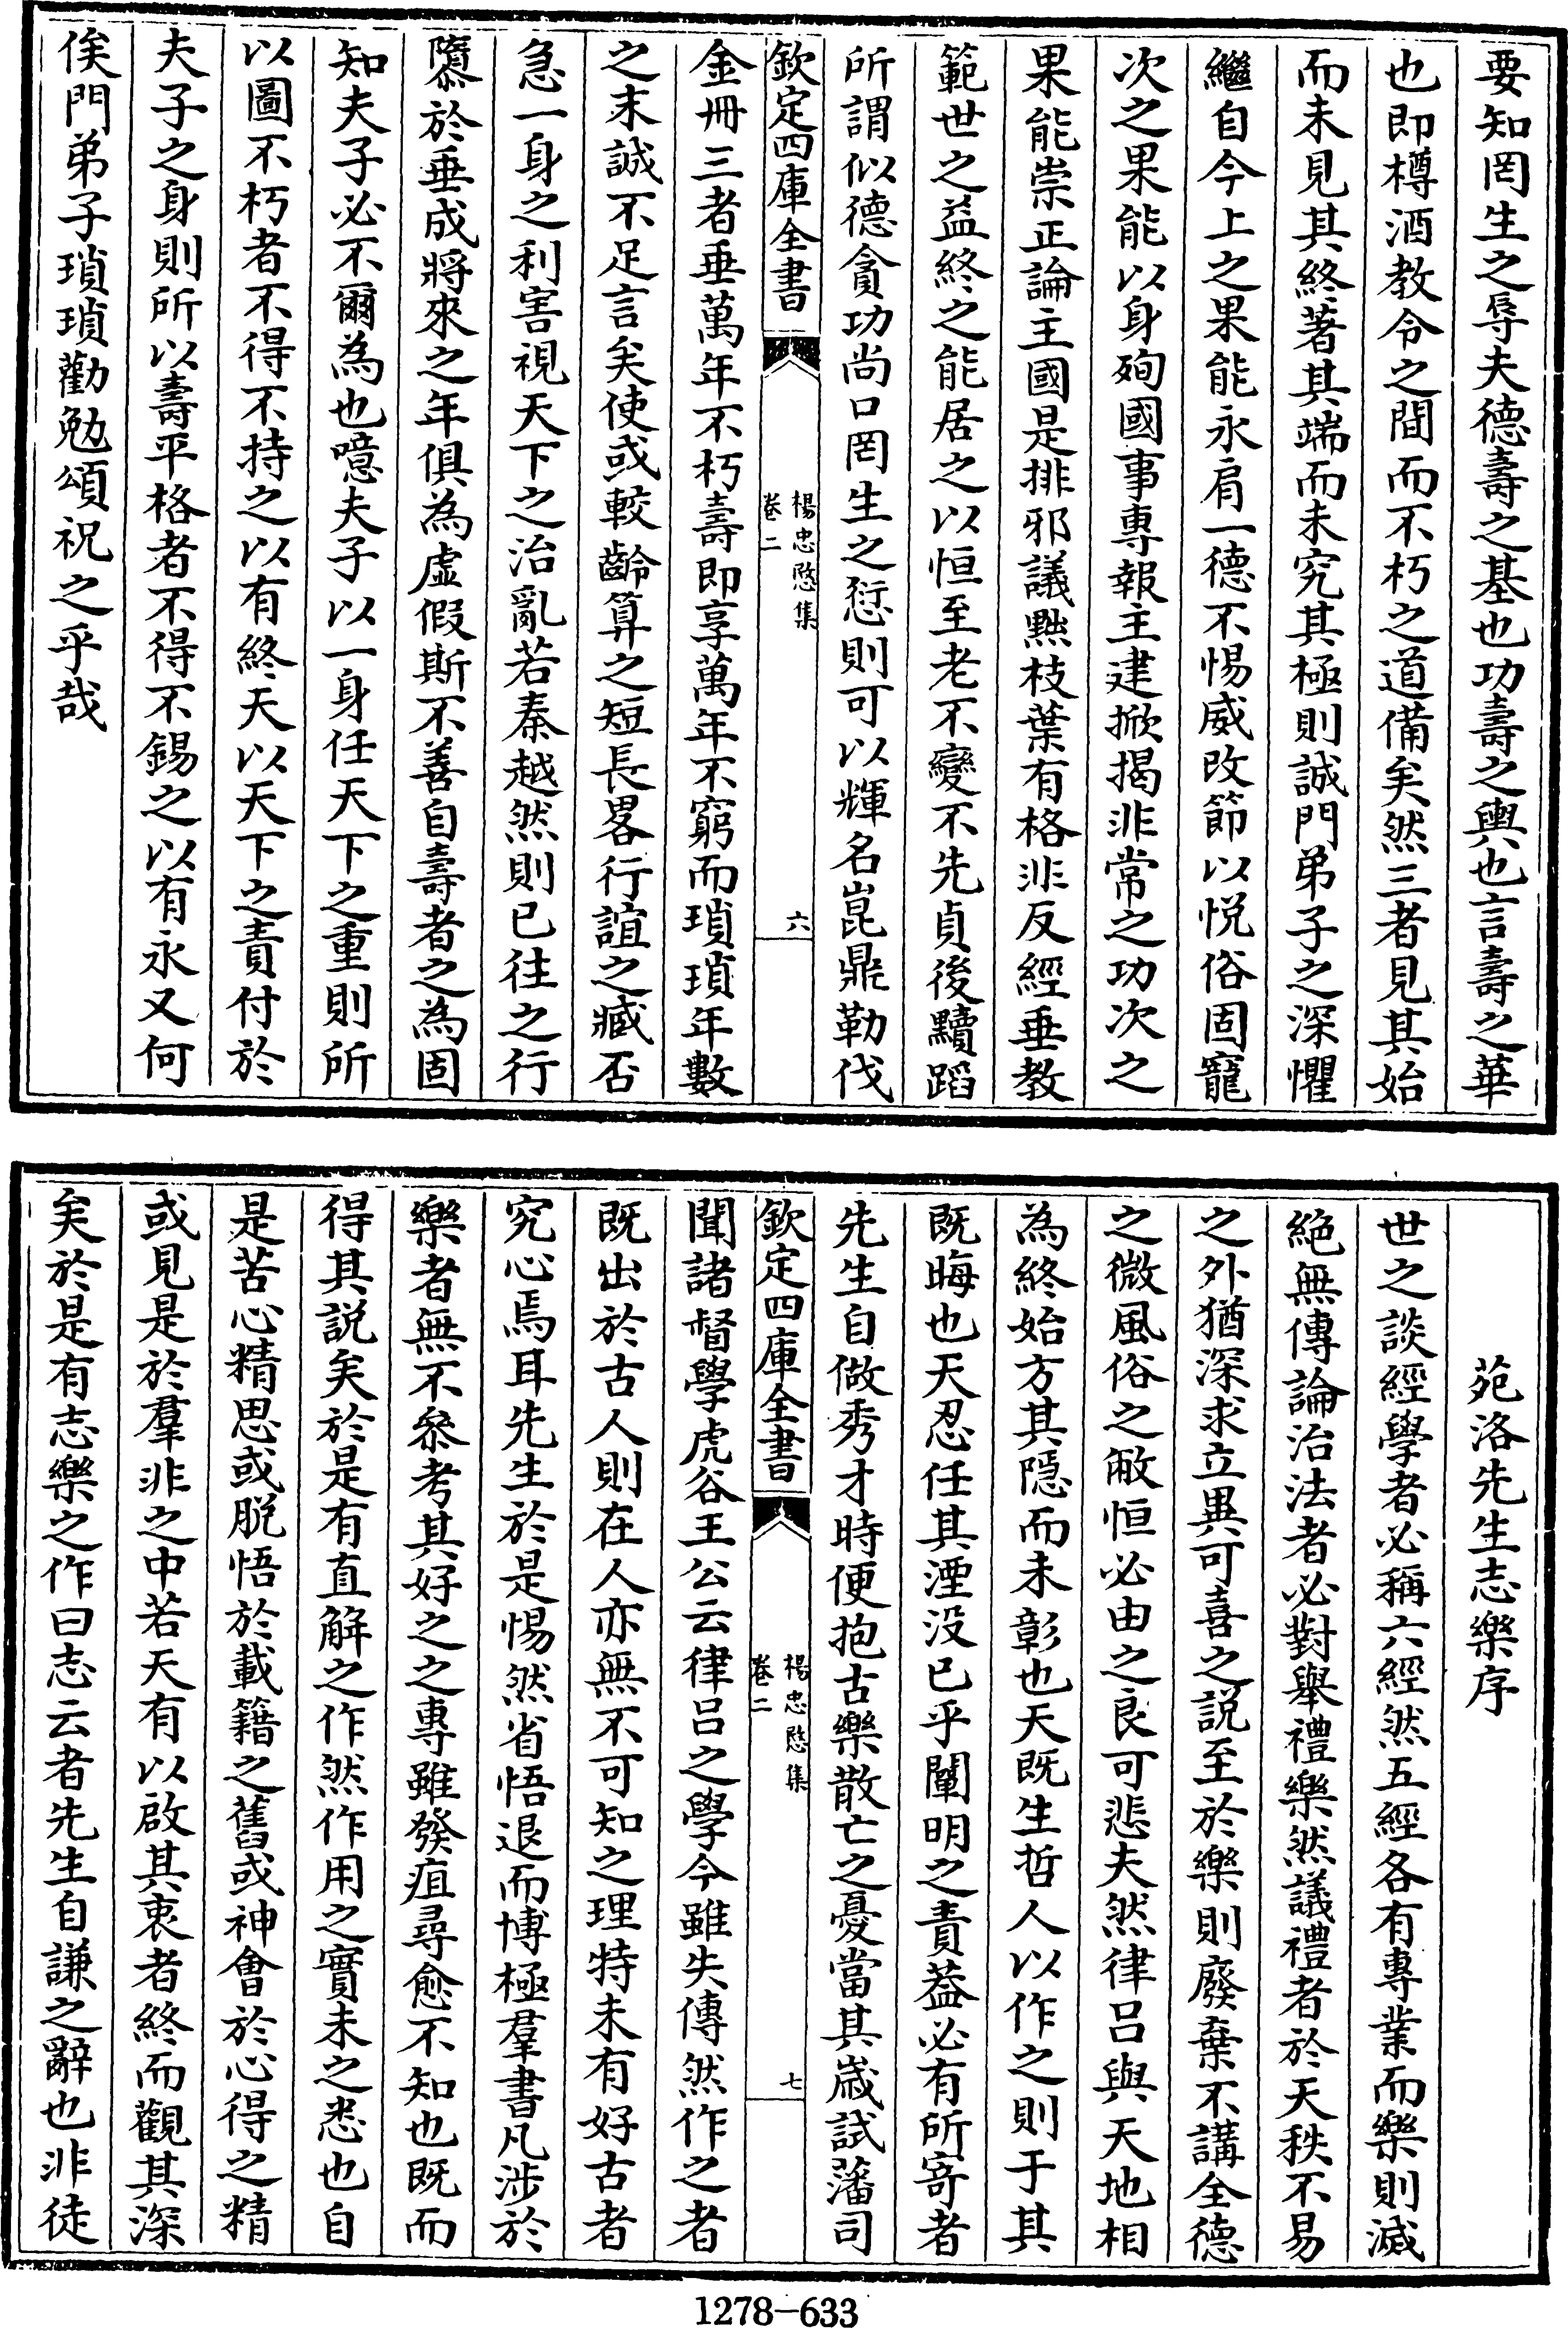 要知罔生之辱夫德壽之基也功壽之輿也言壽之華
也即樽酒教令之間而不朽之道備矣然三者見其始
而未見其終著其端而未究其極則誠門弟子之深懼
繼自今上之果能永肩一德不惕威改節以悦俗固寵
次之果能以身殉國事專報主建掀揭非常之功次之
果能崇正論主國是排邪議黜枝葉有格非反經垂教
範世之益終之能居之以恒至老不變不先貞後黷蹈
所謂似德貪功尚口罔生之愆則可以輝名崑鼎勒伐
欽定四庫全書
楊忠愍集
卷二
六
金冊三者垂萬年不朽壽即享萬年不窮而瑣瑣年數
之末誠不足言矣使或較齡算之短長畧行誼之臧否
急一身之利害視天下之治亂若秦越然則已往之行
隳於垂成將來之年俱為虚假斯不善自壽者之為固
知夫子必不爾為也噫夫子以一身任天下之重則所
以圖不朽者不得不持之以有終天以天下之責付於
夫子之身則所以壽平格者不得不錫之以有永又何
俟門弟子瑣瑣勸勉頌祝之乎哉
苑洛先生志樂序
世之談經學者必稱六經然五經各有專業而樂則滅
絶無傳論治法者必對舉禮樂然議禮者於天秩不易
之外猶深求立異可喜之説至於樂則廢棄不講全德
之微風俗之敝恒必由之良可悲夫然律吕與天地相
為終始方其隱而未彰也天既生哲人以作之則于其
既晦也天忍任其湮没已乎闡明之責葢必有所寄者
先生自做秀才時便抱古樂散亡之憂當其歲試藩司
欽定四庫全書
楊忠愍集
卷二
七
聞諸督學虎谷王公云律吕之學今雖失傳然作之者
既出於古人則在人亦無不可知之理特未有好古者
究心焉耳先生於是惕然省悟退而博極羣書凡涉於
樂者無不參考其好之之專雖發疽尋愈不知也既而
得其説矣於是有直解之作然作用之實未之悉也自
是苦心精思或脱悟於載籍之舊或神會於心得之精
或見是於羣非之中若天有以啟其衷者終而觀其深
矣於是有志樂之作曰志云者先生自謙之辭也非徒
1278-633